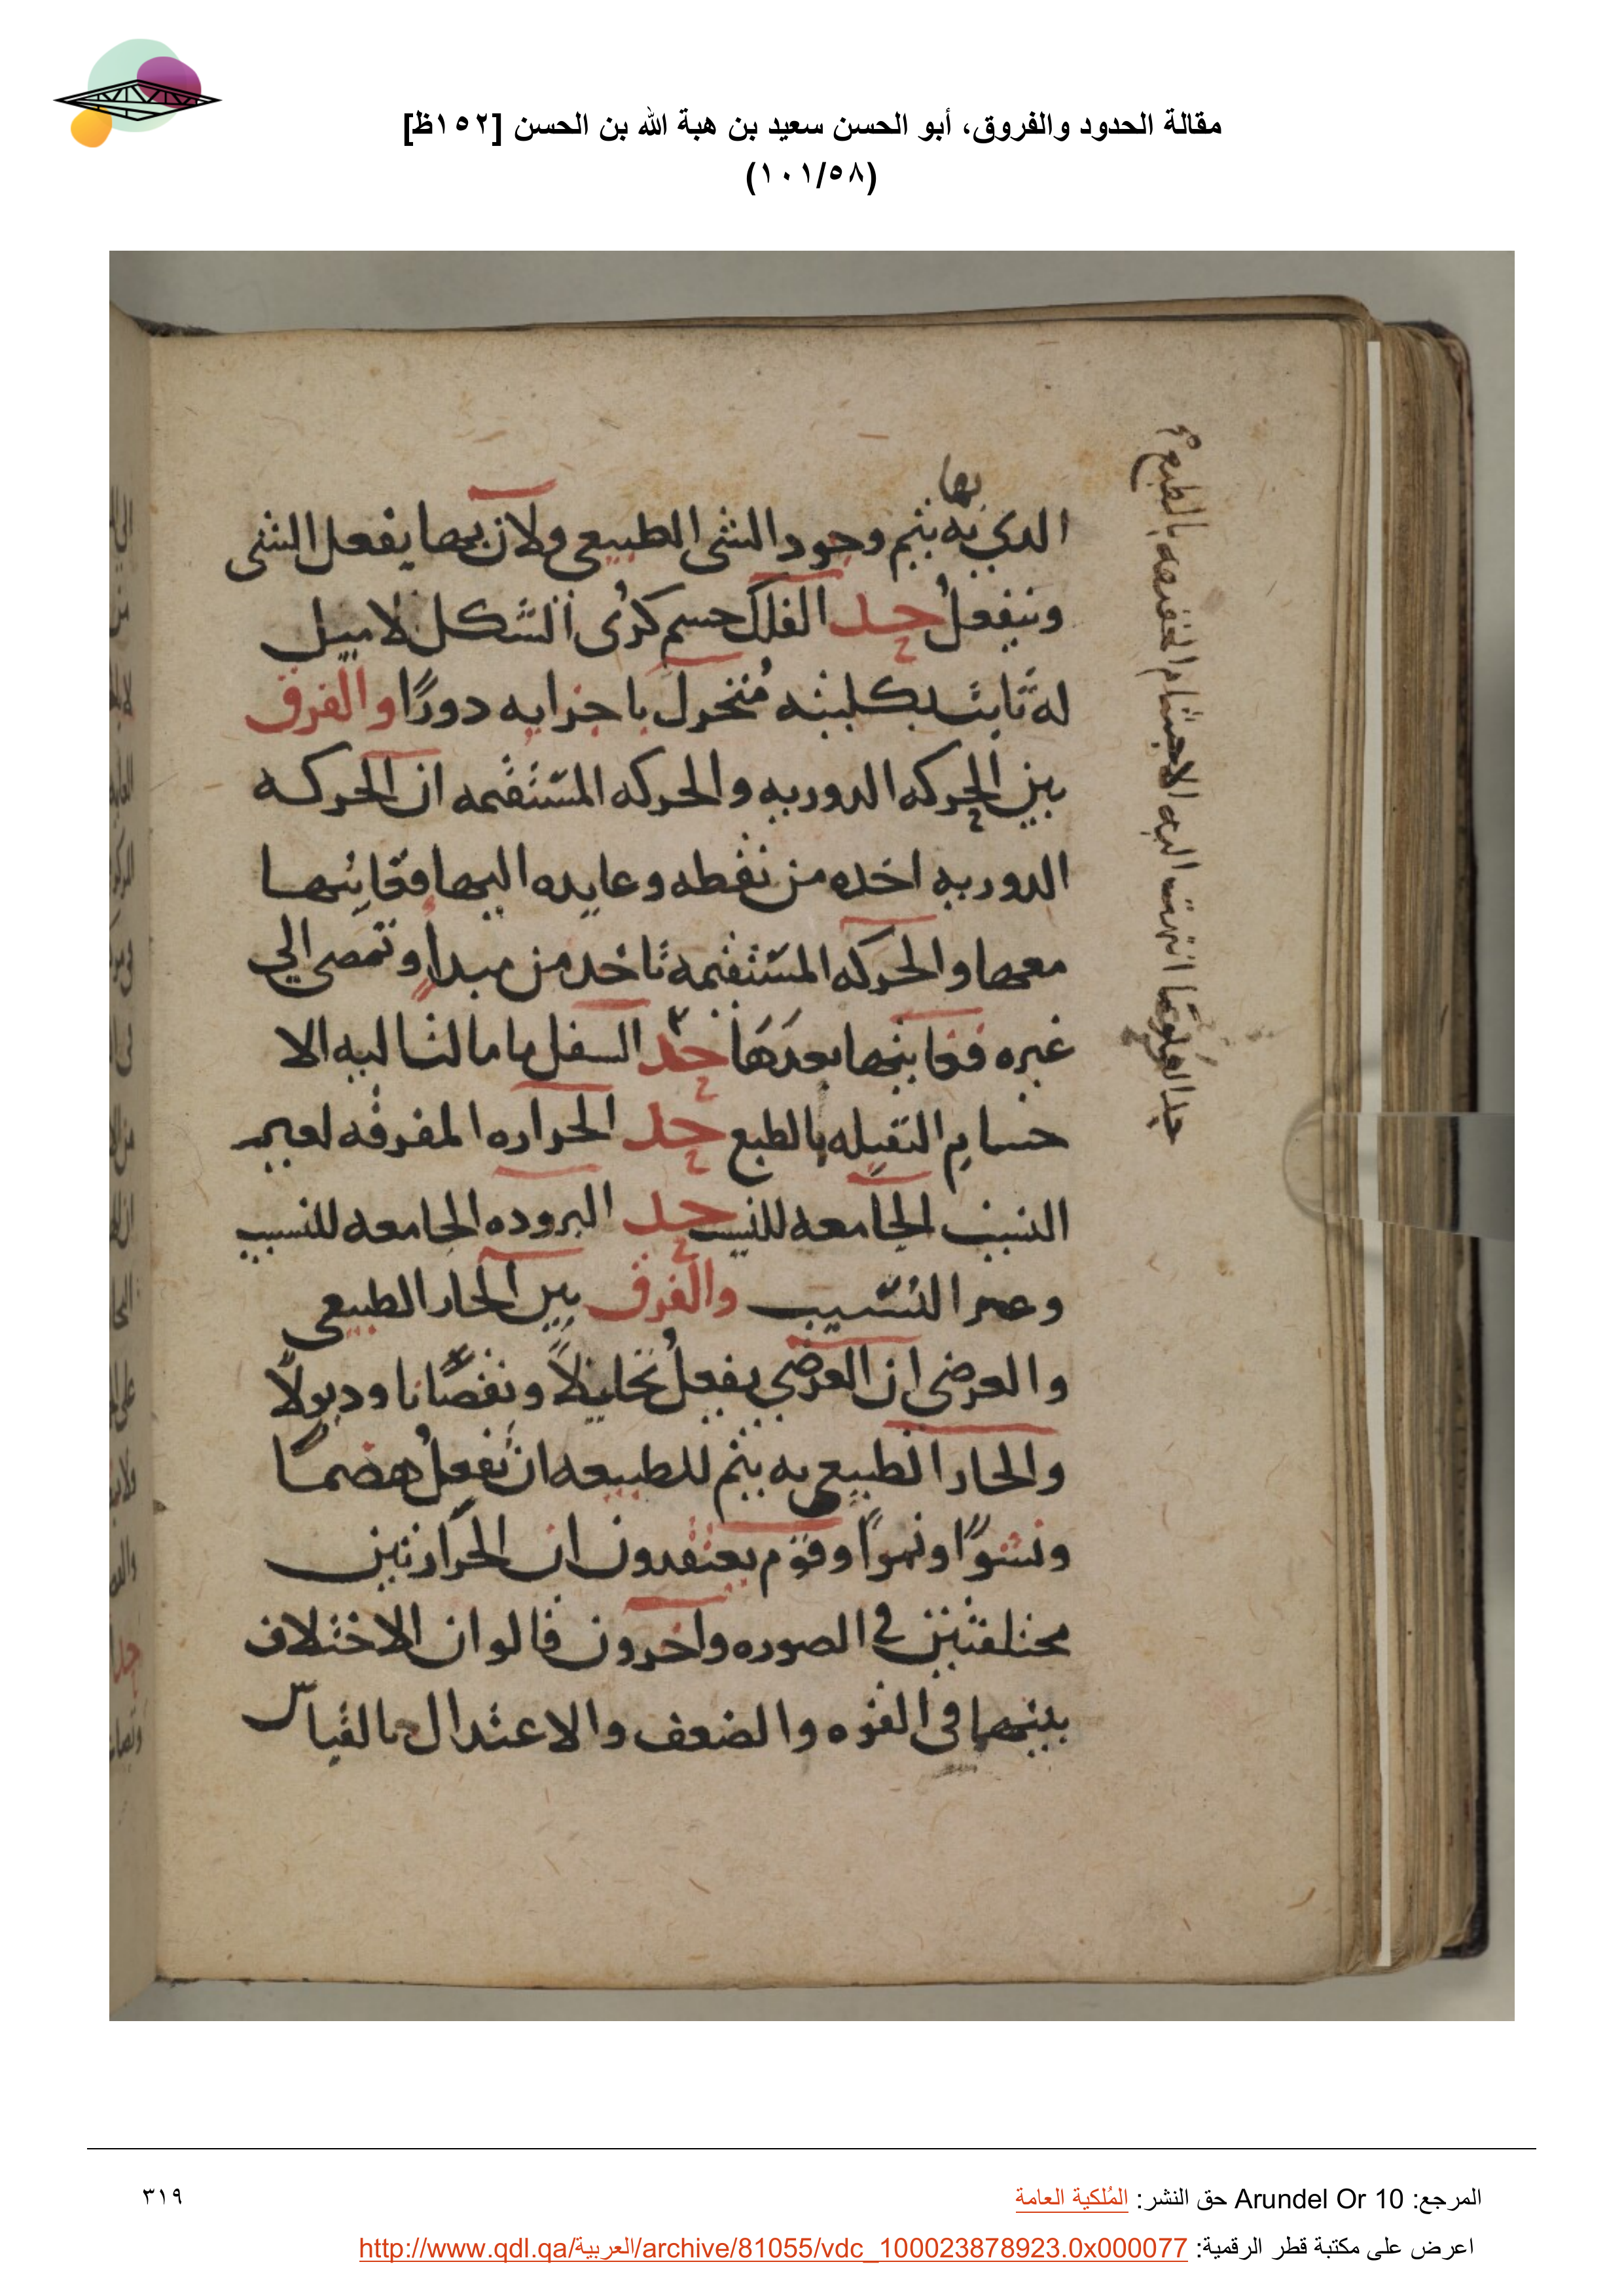 مقالة الحدود والفروق، أبو الحسن سعيد بن هبة الله بن الحسن [١٥٢ظ]
(١٠١/٥٨)
بها
الدي به يتم وجود الشى الطبيعى ولان بهما يفعل الشى
وينفعل حد الفلك جسم كرى الشكل لا ميل
له ثابت بكليته متحرك باجزايه دورًا والفرق
بين الحركه الدوريه والحركه المستقيمه ان الحركه
الدوريه اخده من نقطه وعايده اليها فغايتها
معها والحركه المستقيمه تاخد من مبدأ وتمضى الي
غيره فغايتها بعدها حد السفل ما مالت اليه الا
جسام الثقيله بالطبع حد الحراره المفرقه لغير
النسيب الجامعه للنسيب حد البروده الجامعه للنسيب
وغير النسيب والفرق بين الحار الطبيعى
والعرضى ان العرضي يفعل تحليلاً ونقصانا ودبولاً
والحار الطبيعى به يتم للطبيعه ان تفعل هضمًا
ونشوًا ونموًا وقوم يعتقدون ان الحرارتين
مختلفتين في الصوره واخرون قالوا ان الاختلاف
بينهما فى القوه والضعف والاعتدال بالقياس
حد العلو ما انتهت اليه الاجسام الخفيفه بالطبع
المرجع: Arundel Or 10 حق النشر: المُلكية العامة
٣١٩
اعرض على مكتبة قطر الرقمية: http://www.qdl.qa/العربية/archive/81055/vdc_100023878923.0x000077